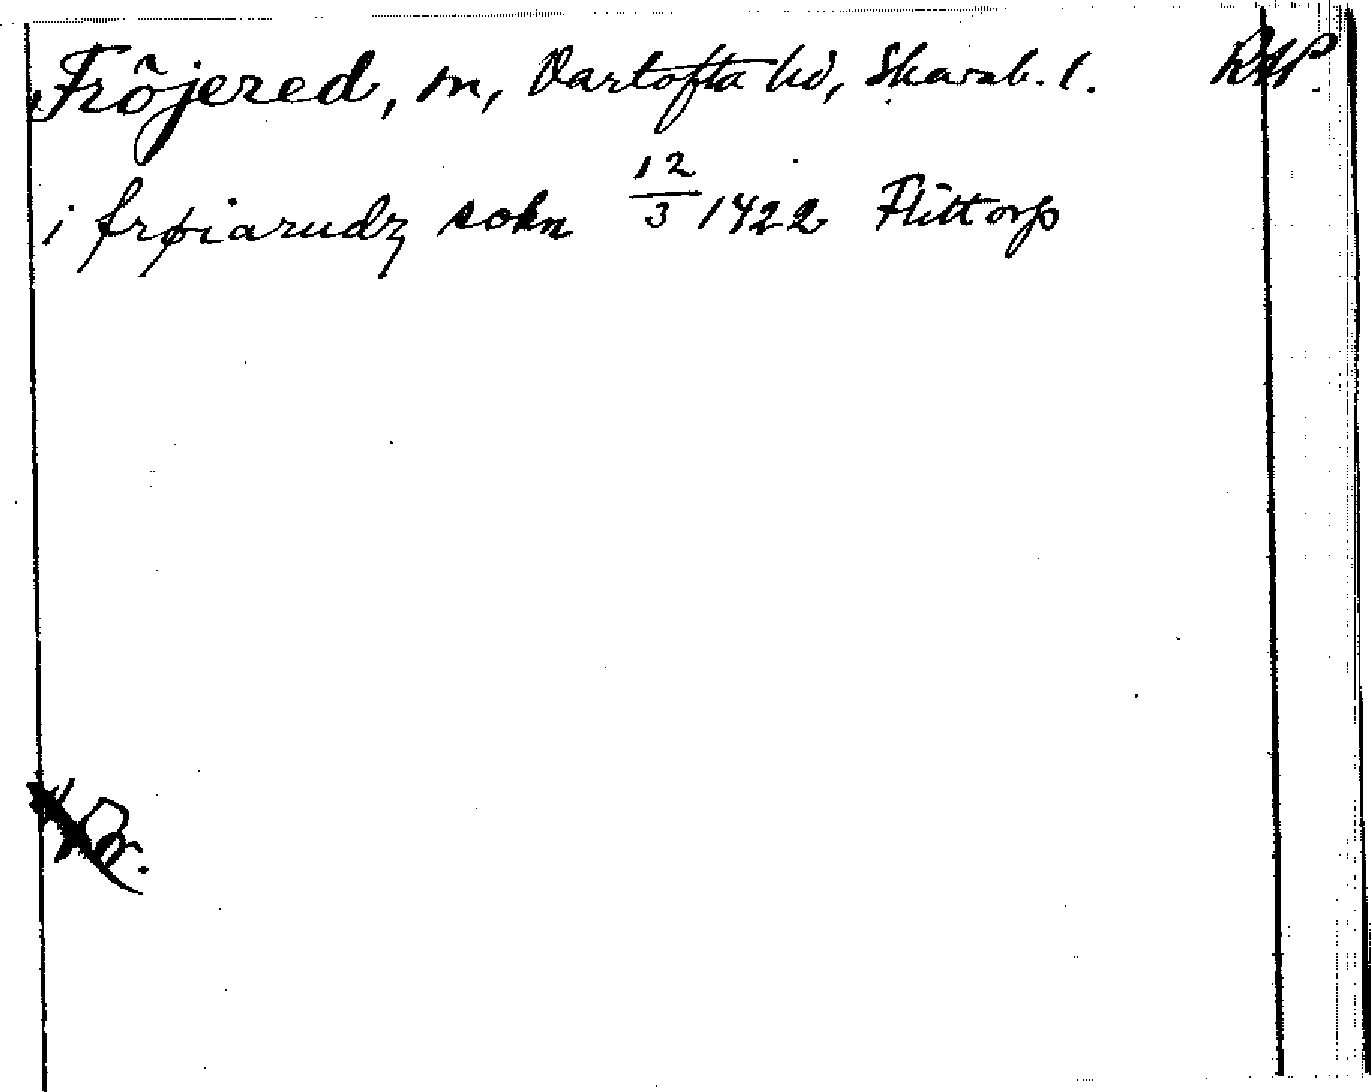 Fröjered, sn, Vartofta hd, Skarab. l. RAP.
i frøiarudz sokn 12/3 1422 Flittorp